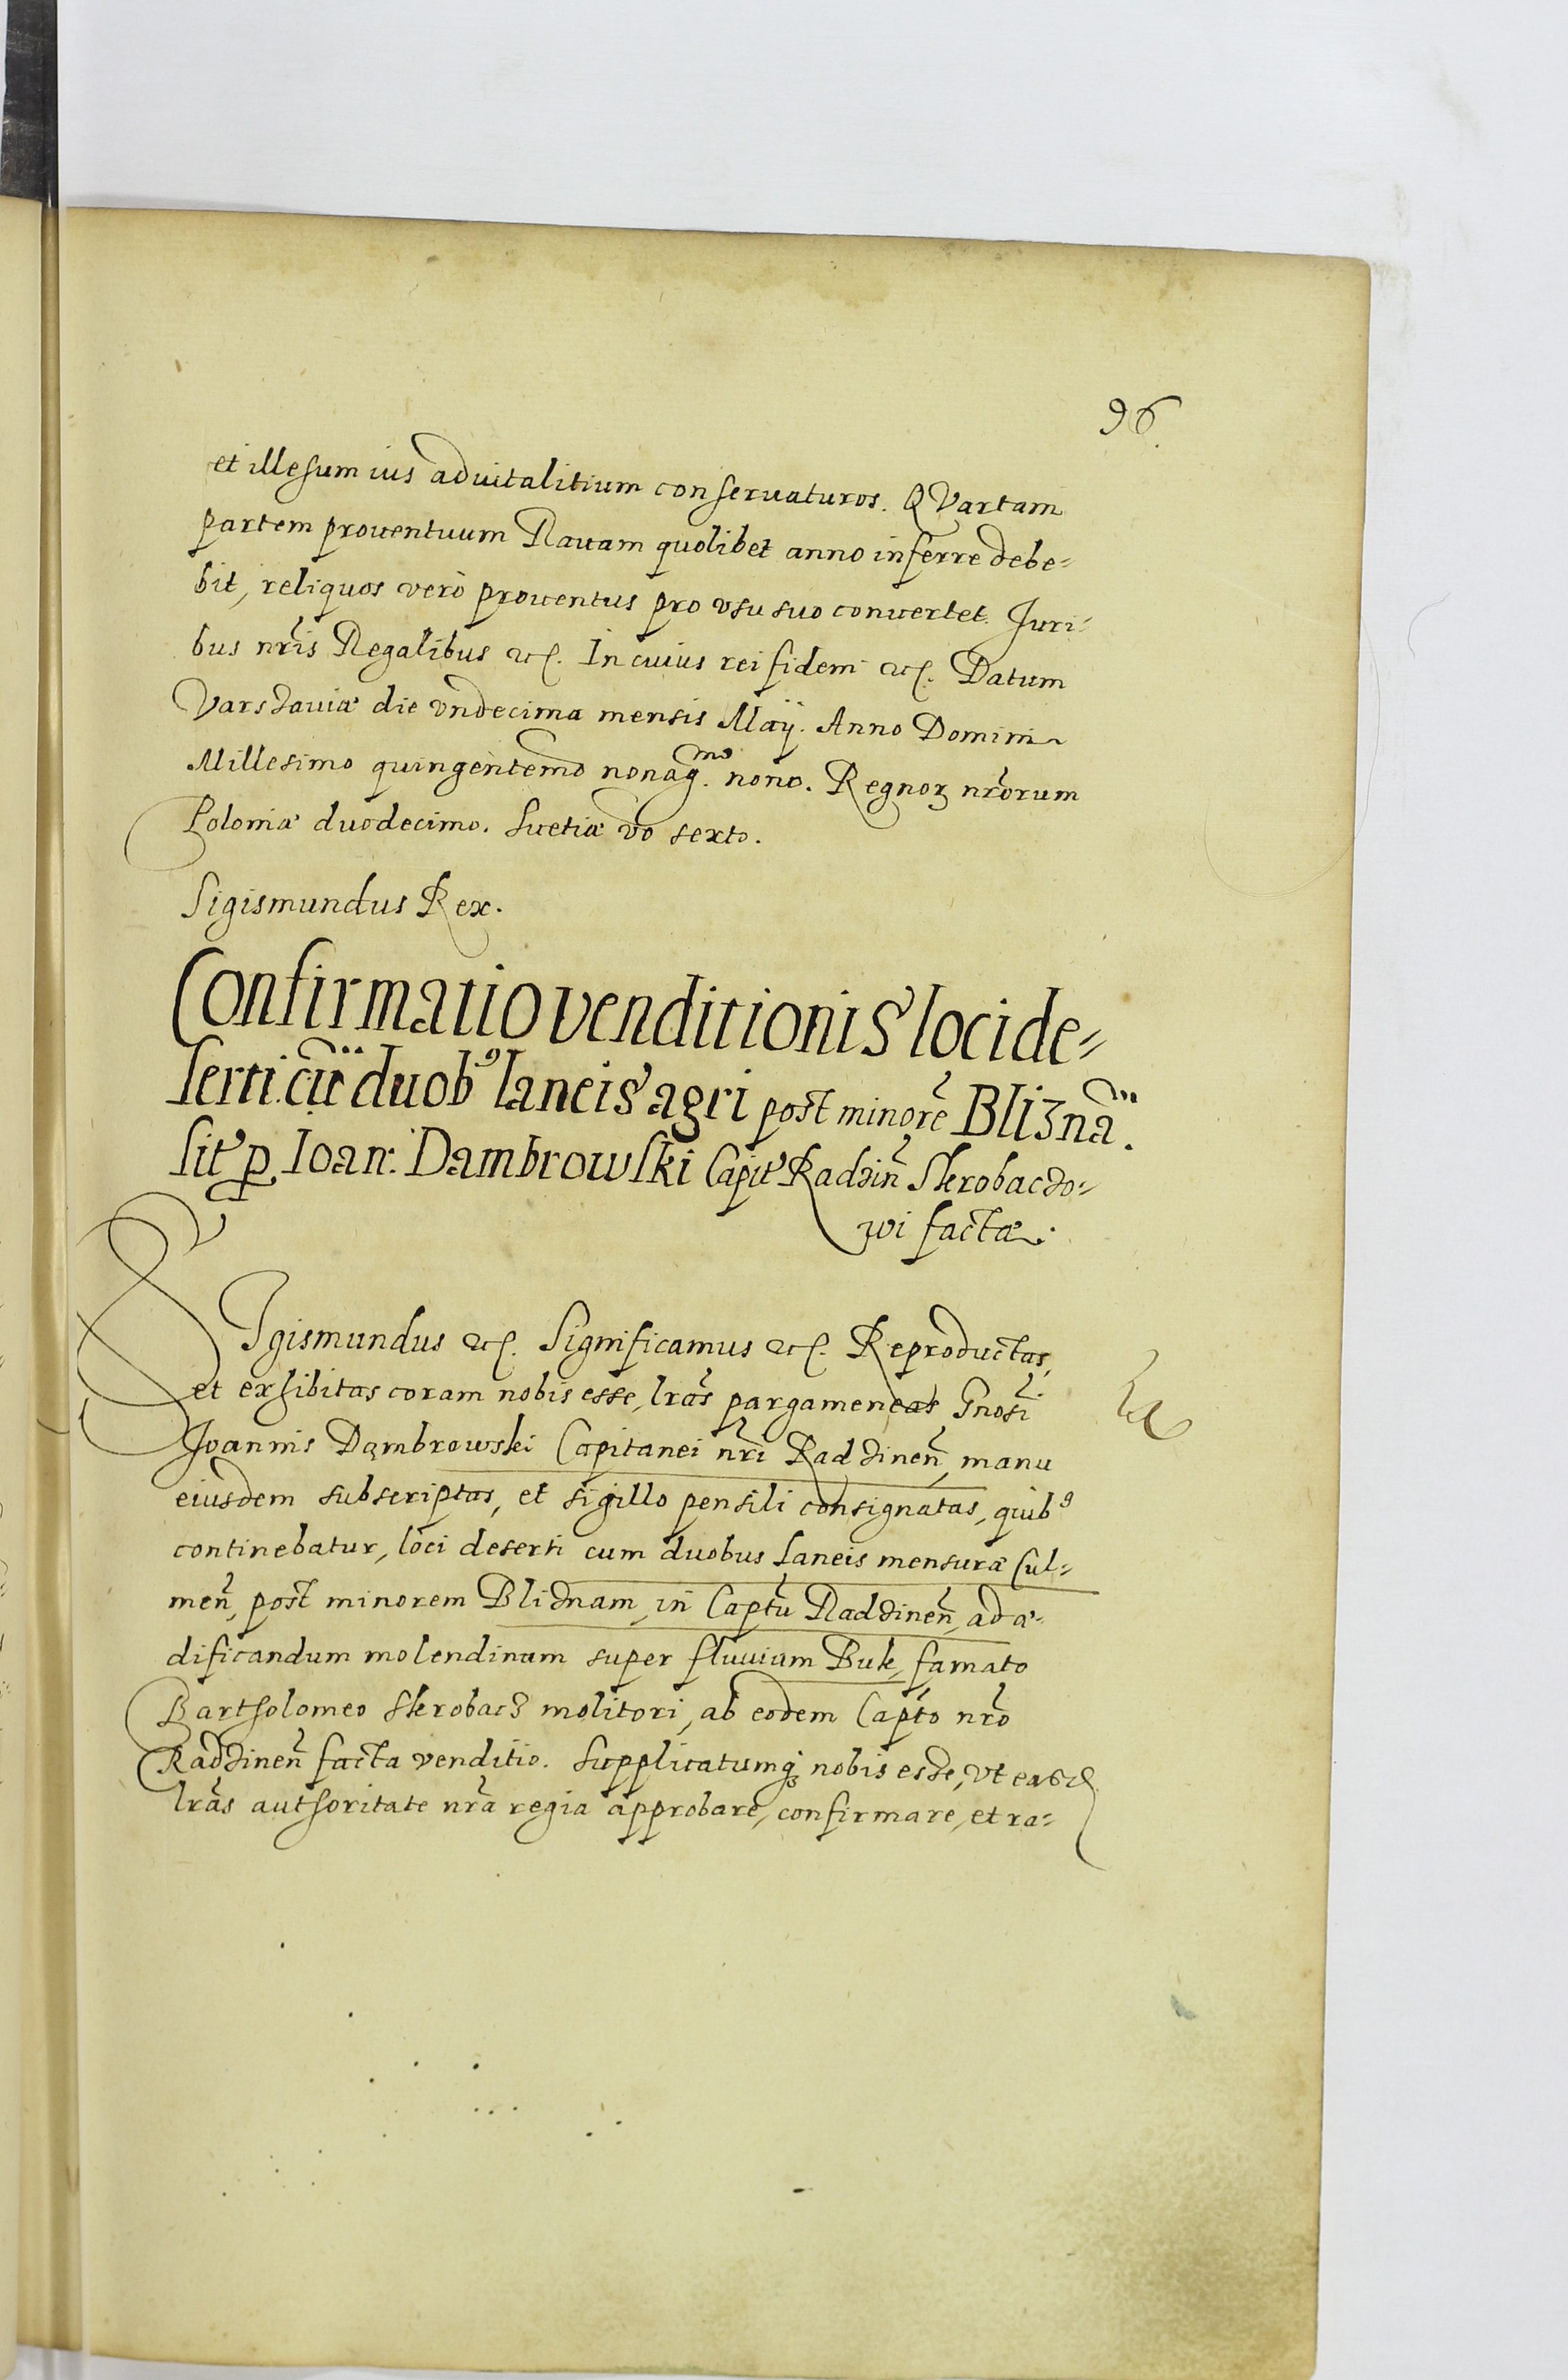 96.
et illesum ius aduitalitium conseruaturos. QVartam
partem prouentuum Rauam quolibet anno inferre debe=
bit, reliquos verò prouentus pro vsu suo conuertet. Juri=
bus nr̃is Regalibus etc. In cuius rei fidem etc. Datum
Varsauiæ die vndecima mensis Maÿ. Anno Domini
Millesimo quingentemo nonag.mo nono. Regnoꝝ nr̃orum
Poloniæ duodecimo. Suetiæ vo sexto.
Sigismundus Rex.
Confirmatio venditionis loci de=
serti cũ duobꝰ laneis agri post minorẽ Bliznã.
sit' ꝑ Ioan: Dambrowski Capit' Radzin̄ Skrobaczo=
wi factæ.
SIgismundus etc. Significamus etc. Reproductas,
et exhibitas coram nobis esse, lrãs pargameneas Gnosi
Joannis Dąmbrowski Capitanei nr̃i Radzinen̄, manu
eiusdem subscriptas, et sigillo pensili consignatas, quibꝰ
continebatur, loci deserti cum duobus Laneis mensuræ Cul=
men̄, post minorem Bliznam, in Captũ Radzinen̄, ad æ=
dificandum molendinum super fluuium Buk, famato
Bartholomeo Skrobacz molitori, ab eodem Capto nr̃o
Radzinen̄ facta venditio. Supplicatumqꝫ nobis esse, vt easd
lrãs authoritate nr̃a regia approbare, confirmare, et ra=